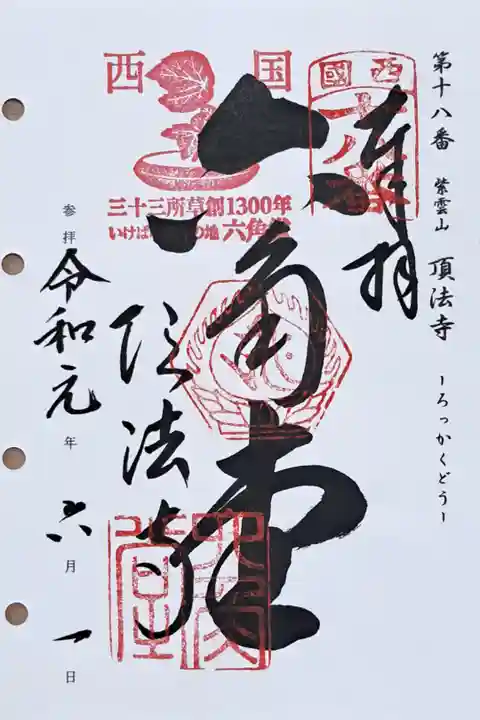 第十八番 紫雲山 頂法寺 ーろっかくどうー
奉拝
西国
六角堂
三十三所草創1300年
いけばな の地 六角堂
頂法寺
参拝 令和元年 六月 一日
西國
六角堂